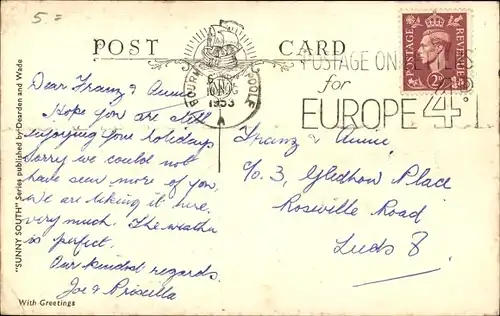 5=
POST CARD
BOURNEMOUTH POOLE
1953
A
POSTAGE ON
for
EUROPE 4D
POSTAGE REVENUE
2D
Dear Franz & Annie
Hope you are still
enjoying your holidays
Sorry we could not
have seen more of you.
We are liking it here.
very much. The weather
is perfect.
Our kindest regards.
Joe & Priscilla
Franz & Annie
C/o. 3, Gledhow Place
Roseville Road
Leeds 8
"SUNNY SOUTH" Series published by Dearden and Wade
With Greetings